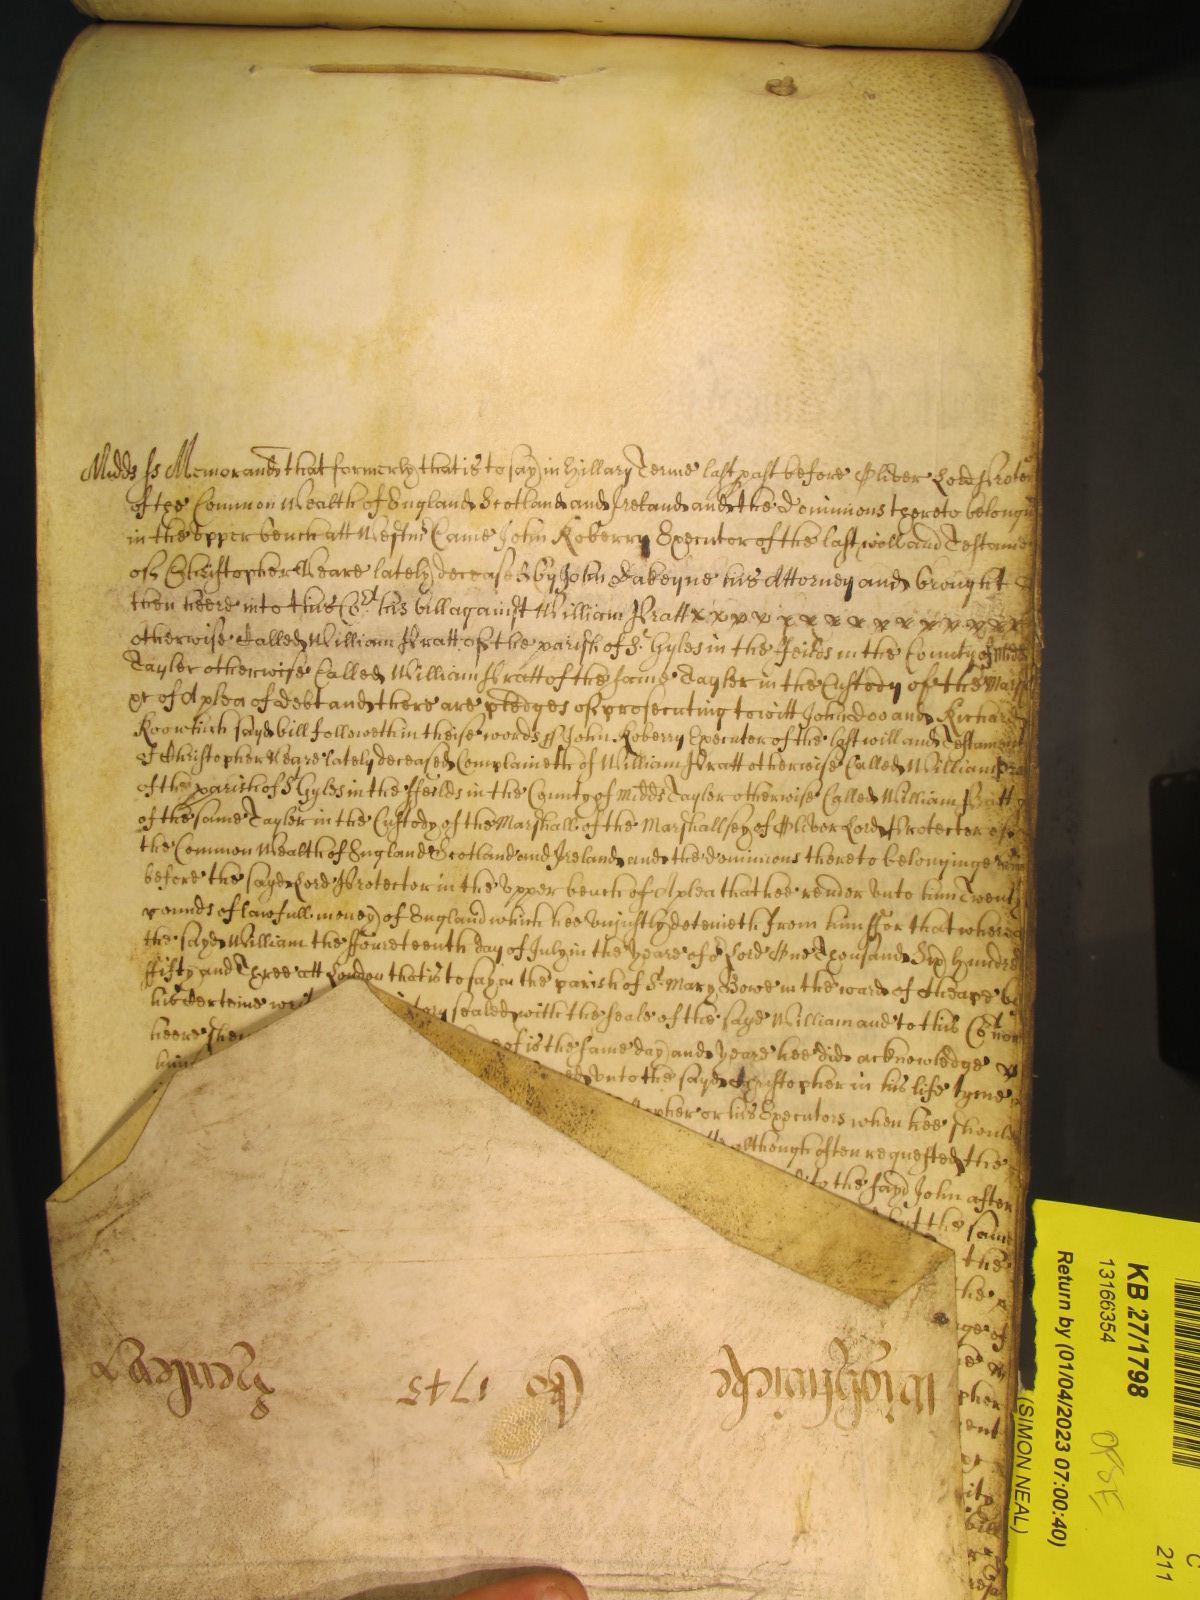 Midds ss Memorand that formerly that is to say in Hillary Terme last past before Oliver Lord Protec
of the Common Wealth of England Scotland and Ireland and the Dominions thereto belongi
in the upper bench att Westmr Came John Roberry Executor of the last will and Testame
of Christopher Weare lately deceased by John Dakeyne his Attorney and brought
then heere into this Crt his bill against William Pratt x x x x x x x x x x x x x x
otherwise Called William Pratt of the parish of St Gyles in the ffeilds in the County of Midds
Tayler otherwise Called William Pratt of the same Tayler in the Custody of the Mars
&c of A plea of debt and there are pledges of prosecuting to witt John Doo and Richard
Roo which sayd bill followeth in theise words ss John Roberry Executor of the last will and Testament
of Christopher Weare lately deceased Complaineth of William Pratt otherwise Called William Pra
of the parish of St Gyles in the ffeilds in the County of Midds Tayler otherwise Called William Pratt
of the same Tayler in the Custody of the Marshall of the Marshallsey of Oliver Lord Protector of
the Common Wealth of England Scotland and Ireland and the dominions thereto belonginge
before the sayd Lord Protector in the Upper bench of A plea that hee render unto him Twenty
pounds of lawfull money of England which hee Unjustly deteineth from him ffor that wherea
the sayd William the ffoureteenth day of July in the Yeare of or Lord One Thousand Six hundred
ffifty and Three att London that is to say in the parish of St Mary Bowe in the ward of Cheape by
his Certeine writ sealed with the seale of the sayd William and to this Crt now
heere shew eof is the same day and yeare hee did acknowledge
him ed unto the sayd Christopher in his life tyme
opher or his Executors when hee should
although often requested the
to the sayd John after
but the same
the
the
ge of

pher
ent



KB 27/1798
13166354
Return by (01/04/2023 07:00:40)
(SIMON NEAL)
C
211
Wightwicke Co 1745 Henley